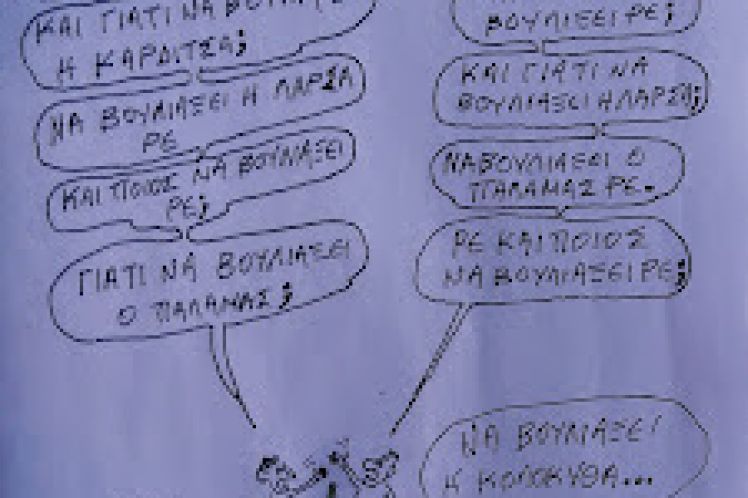 ΚΑΙ ΓΙΑΤΙ ΝΑ
Η ΚΑΡΔΙΤΣΑ;
ΝΑ ΒΟΥΛΙΑΞΕΙ Η ΛΑΡΣΑ
ΡΕ
ΚΑΙ ΠΟΙΟΣ ΝΑ ΒΟΥΛΙΑΞΕΙ
ΡΕ;
ΓΙΑΤΙ ΝΑ ΒΟΥΛΙΑΞΕΙ
Ο ΠΑΛΑΜΑΣ;
ΒΟΥΛΙΑΞΕΙ ΡΕ;
ΚΑΙ ΓΙΑΤΙ ΝΑ
ΒΟΥΛΙΑΞΕΙ Η ΛΑΡΣΑ;
ΝΑ ΒΟΥΛΙΑΞΕΙ Ο
ΠΑΛΑΜΑΣ ΡΕ.
ΡΕ ΚΑΙ ΠΟΙΟΣ
ΝΑ ΒΟΥΛΙΑΞΕΙ ΡΕ;
ΝΑ ΒΟΥΛΙΑΞΕΙ
Η ΚΟΛΟΚΥΘΑ...